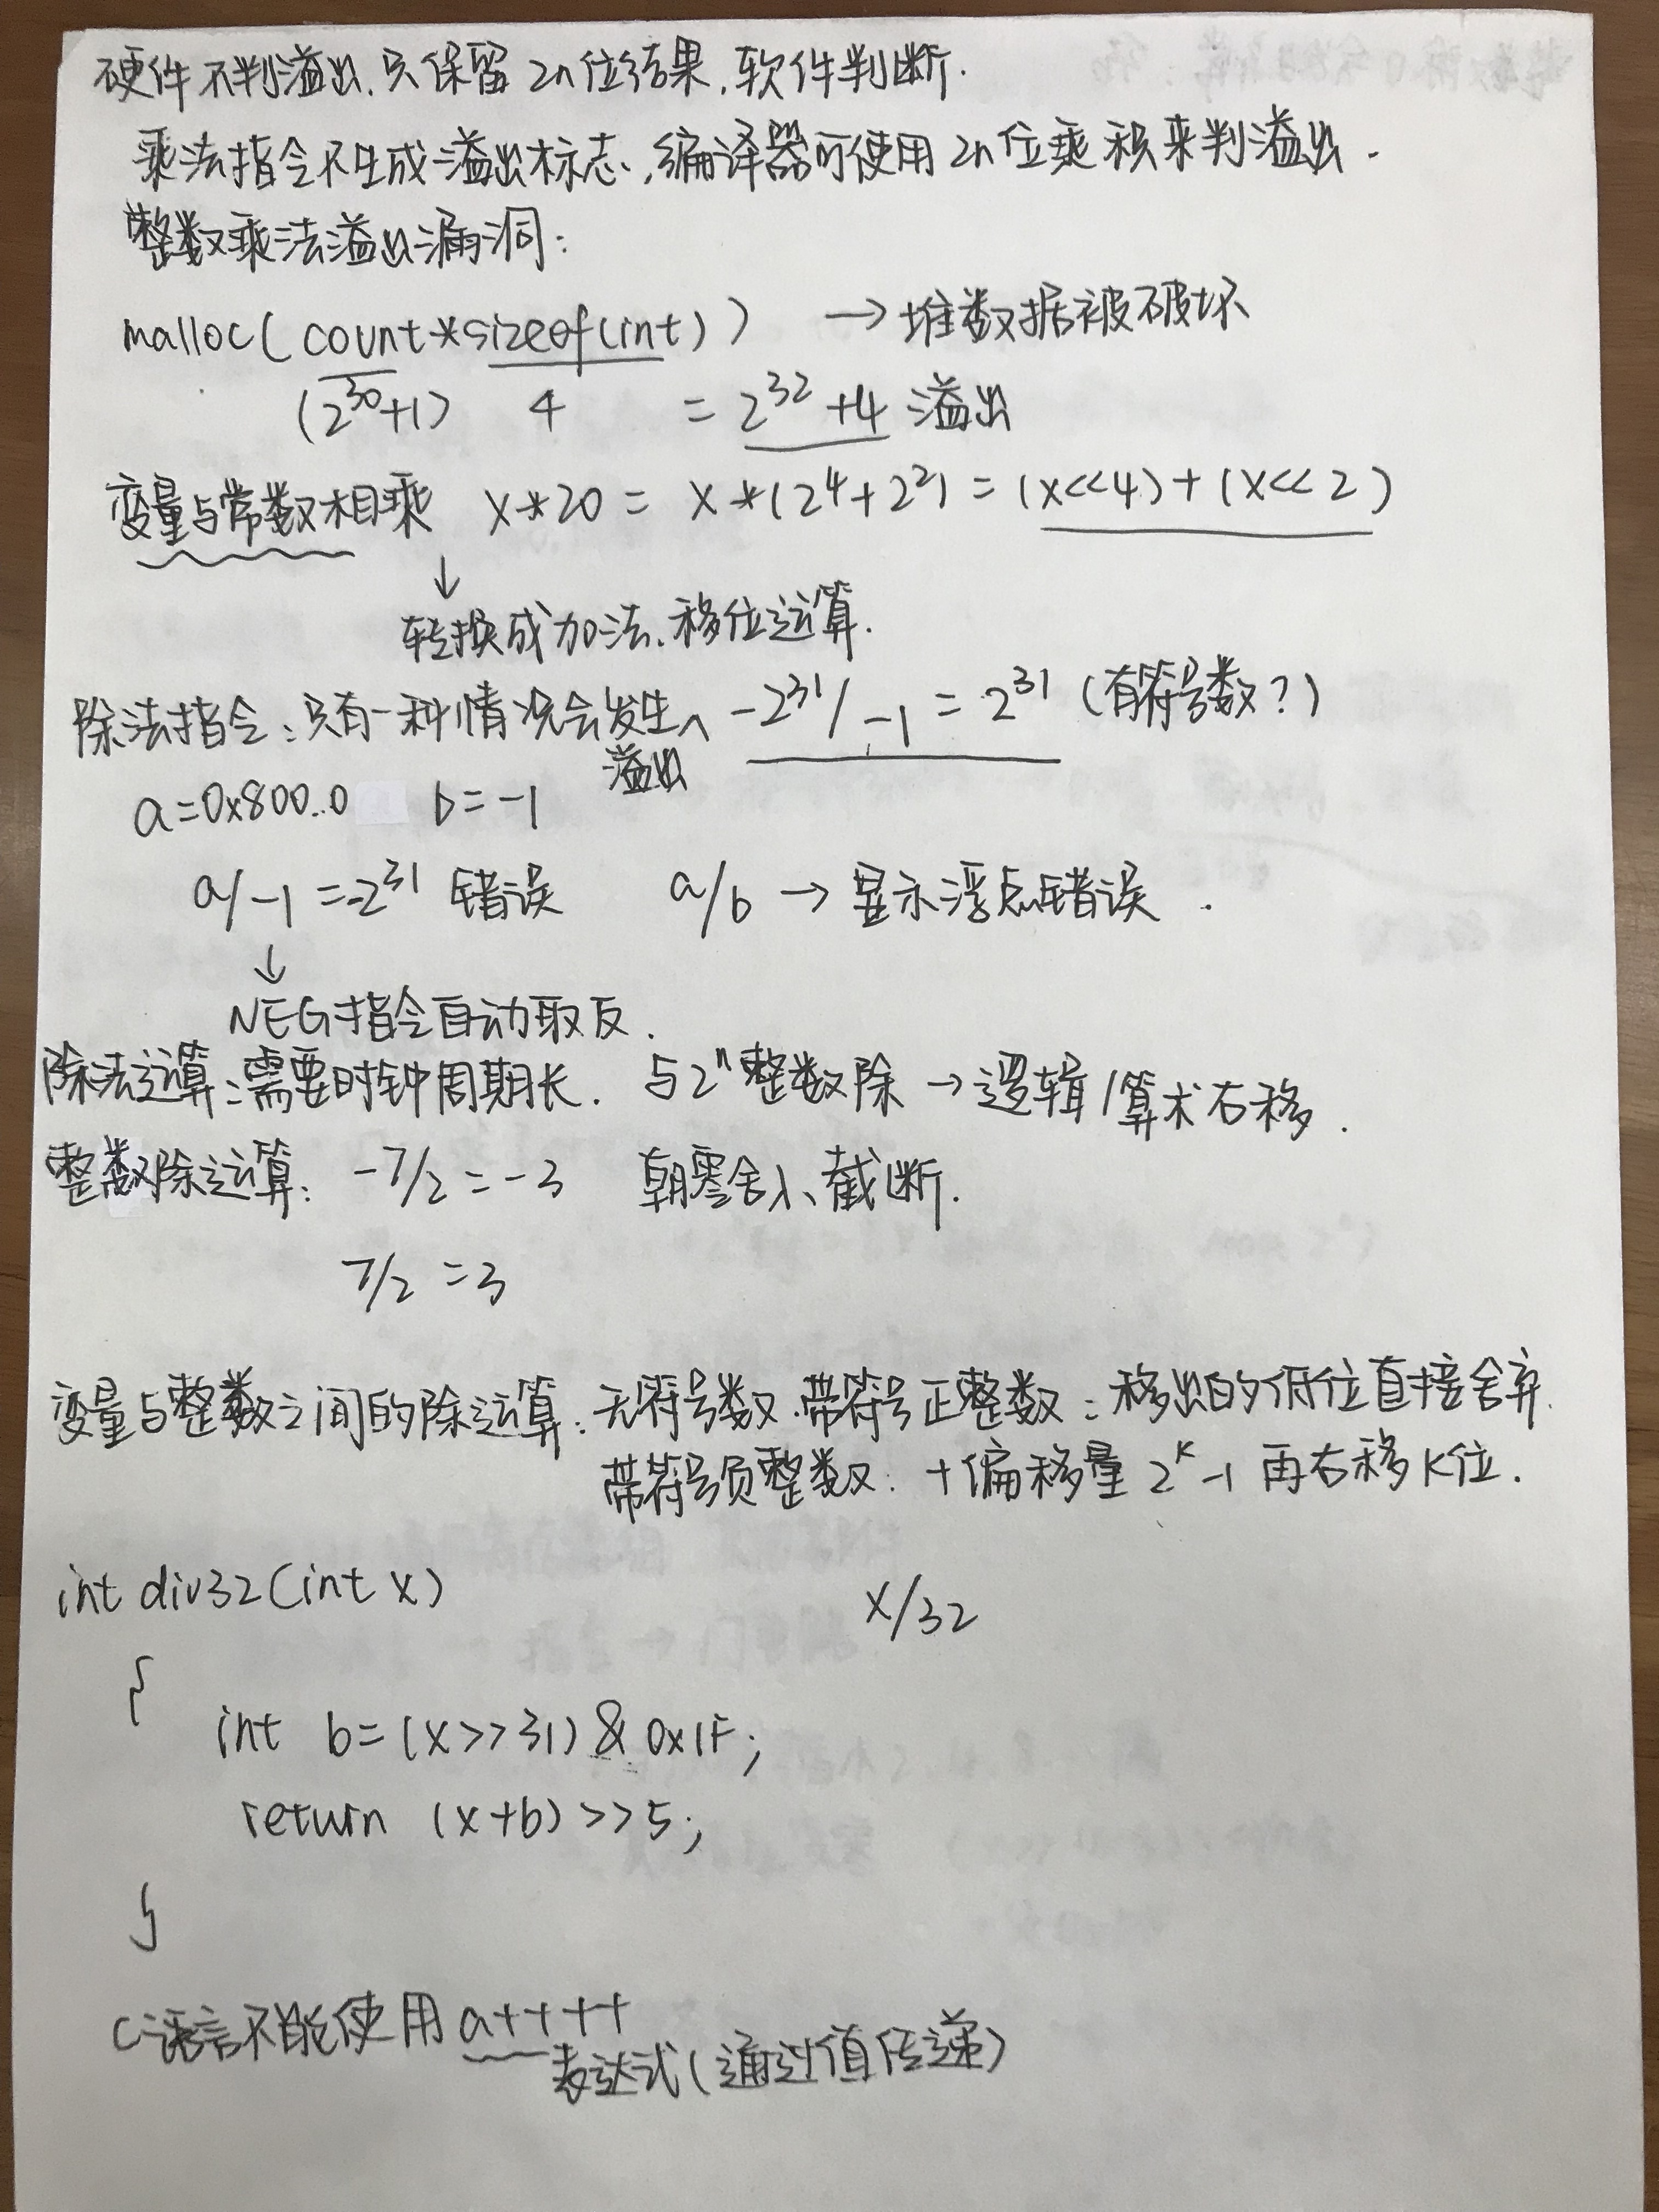 硬件不判溢出,只保留2n位结果,软件判断.
乘法指令不生成溢出标志,编译器可使用2n位乘积来判溢出.
整数乘法溢出漏洞:
malloc(count*sizeof(int)) →堆数据被破坏
(2³⁰+1) 4 = 2³²+4 溢出
变量与常数相乘 x*20 = x*(2⁴+2²) = (x<<4)+(x<<2)
↓
转换成加法、移位运算.
除法指令:只有一种情况会发生溢出 -2³¹/-1 = 2³¹ (有符号数?)
a=0x800..0 b=-1
a/-1 =-2³¹ 错误 a/b → 显示浮点错误.
↓
NEG指令自动取反.
除法运算:需要时钟周期长. 与2ⁿ整数除→逻辑/算术右移.
整数除运算: -7/2 = -3 朝零舍入、截断.
7/2 = 3
变量与整数之间的除运算:无符号数、带符号正整数:移出的低位直接舍弃.
带符号负整数: +偏移量 2ᵏ-1 再右移K位.
int div32(int x) x/32
{
int b=(x>>31)&0x1F;
return (x+b)>>5;
}
C语言不能使用a++++
表达式(通过值传递)